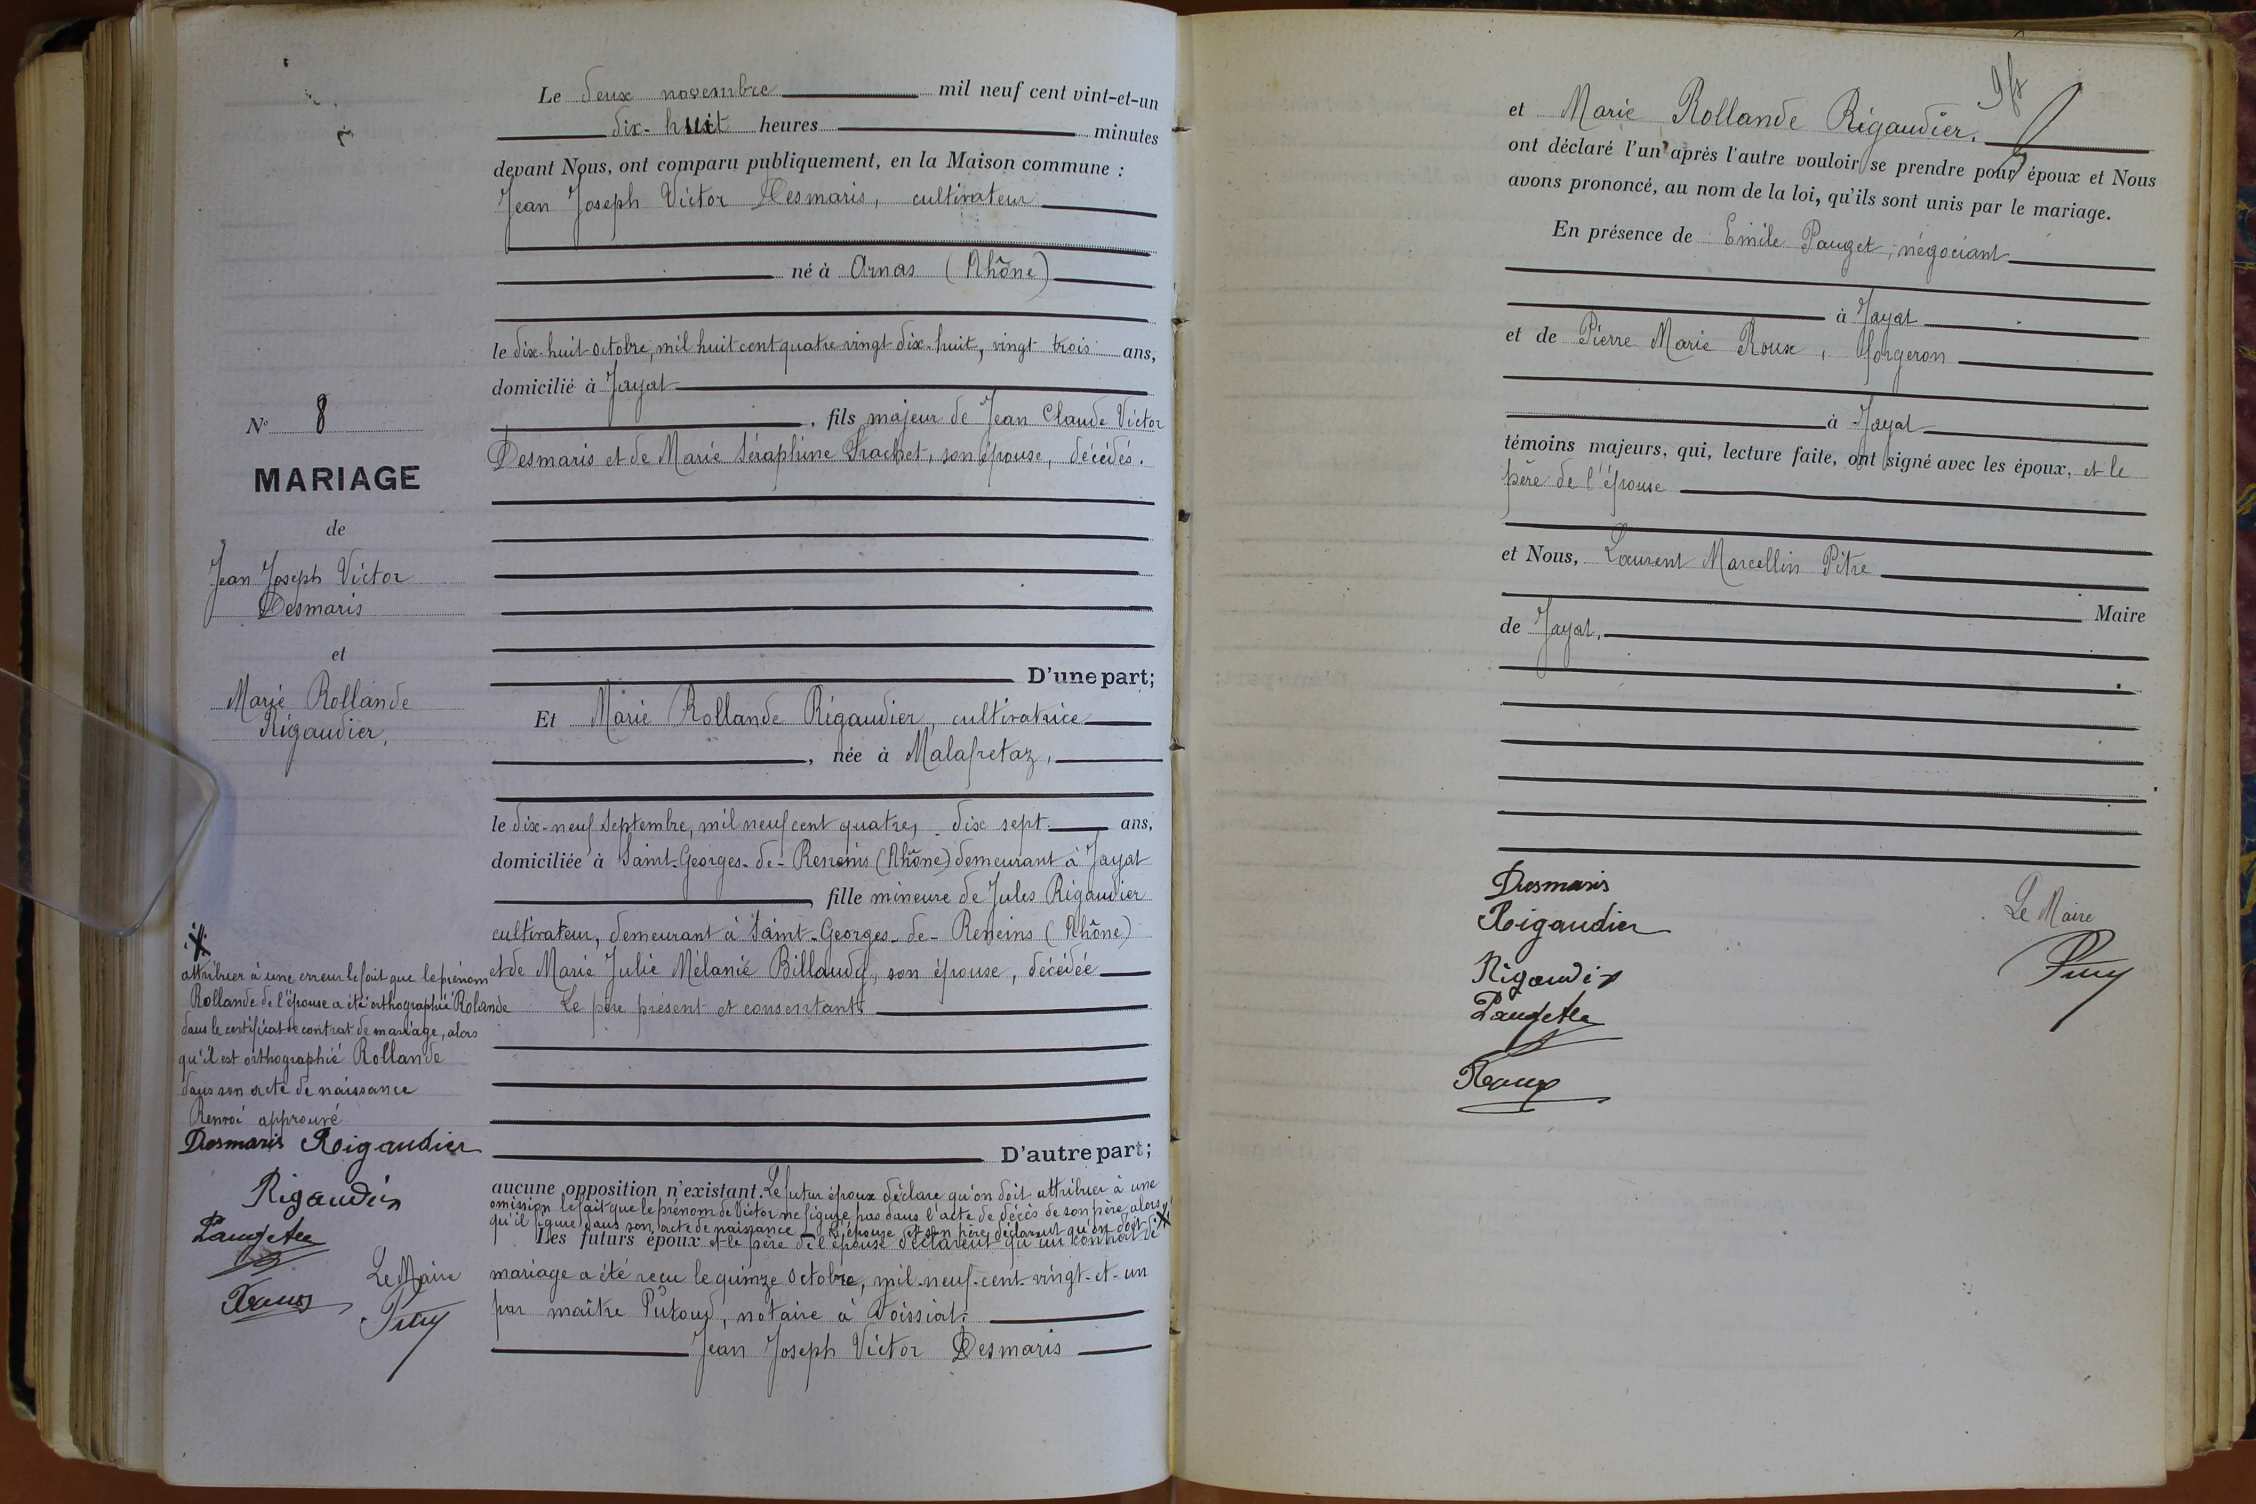 Le deux novembre mil neuf cent vint-et-un
dix-huit heures minutes
devant Nous, ont comparu publiquement, en la Maison commune :
Jean Joseph Victor Desmaris, cultivateur
né à Arnas (Rhône)
le dix-huit octobre, mil huit cent quatre vingt dix-huit, vingt trois ans,
domicilié à Jayat
, fils majeur de Jean Claude Victor
Desmaris et de Marie Séraphine Trachet, son épouse, décédés.
D'une part;
Et Marie Rollande Rigaudier, cultivatrice
, née à Malafretaz,
le dix-neuf Septembre, mil neuf cent quatre, dix sept ans,
domiciliée à Saint-Georges-de-Reneins (Rhône) demeurant à Jayat
, fille mineure de Jules Rigaudier
cultivateur, demeurant à Saint-Georges-de-Reneins (Rhône)
et de Marie Julie Mélanie Billaudy, son épouse, décédée
Le père présent et consentant
D'autre part;
aucune opposition n'existant. Le futur époux déclare qu'on doit attribuer à une
omission le fait que le prénom de Victor ne figure pas dans l'acte de décès de son père, alors
qu'il figure dans son acte de naissance L'épouse et son père déclarent qu'on doit
Les futurs époux et le père de l'épouse déclarent qu'un contrat de
mariage a été reçu le quinze Octobre, mil-neuf-cent-vingt-et-un
par maître Putoud, notaire à Foissiat.
Jean Joseph Victor Desmaris
N° 8
MARIAGE
de
Jean Joseph Victor
Desmaris
et
Marie Rollande
Rigaudier,
attribuer à une erreur le fait que le prénom
Rollande de l'épouse a été orthographié Rolande
dans le certificat de contrat de mariage, alors
qu'il est orthographié Rollande
dans son acte de naissance
Renvoi approuvé
Desmaris Rigaudier
Rigaudier
Le Maire
et Marie Rollande Rigaudier.
ont déclaré l'un après l'autre vouloir se prendre pour époux et Nous
avons prononcé, au nom de la loi, qu'ils sont unis par le mariage.
En présence de Emile Pauget, négociant
à Jayat
et de Pierre Marie Roux, forgeron
à Jayat
témoins majeurs, qui, lecture faite, ont signé avec les époux, et le
père de l'épouse
et Nous, Laurent Marcellin Pitre
Maire
de Jayat.
Desmaris
Rigaudier
Rigaudier
Roux
Le Maire